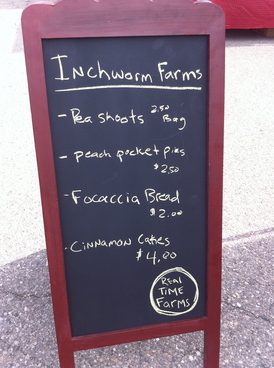 Inchworm Farms
- Pea shoots 2.50 Bag
- peach pocket pies
$2.50
- Focaccia Bread
$2.00
- Cinnamon Cakes
$4.00
REAL
TIME
FARMS